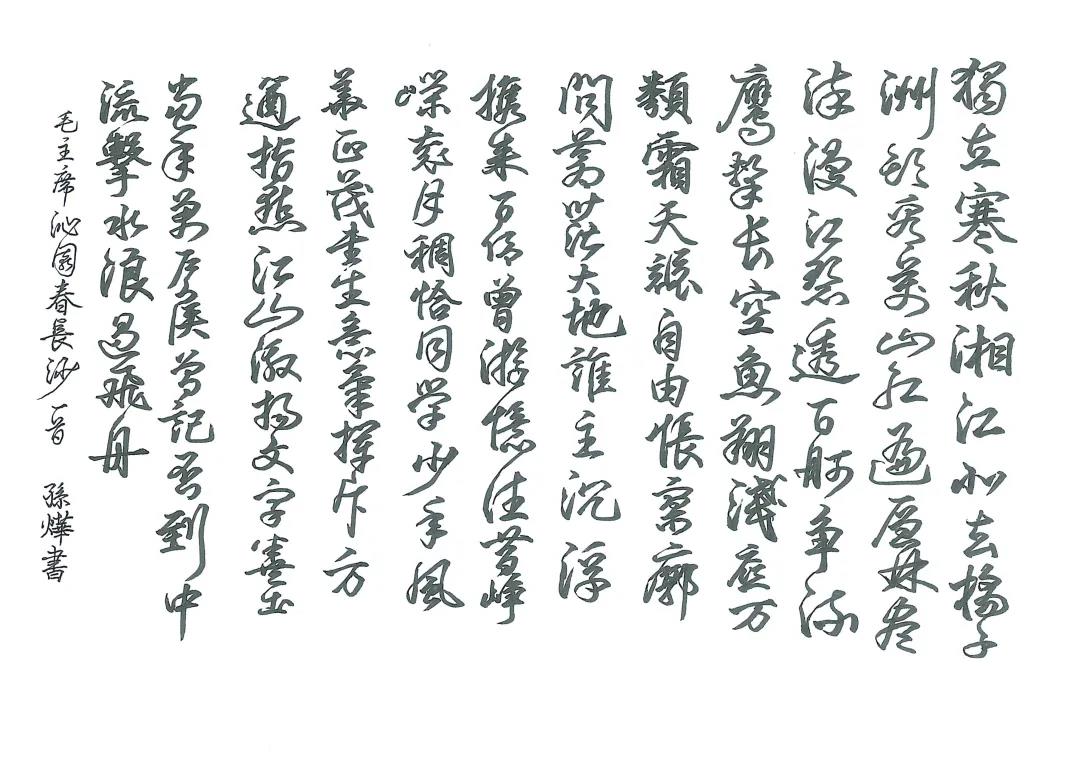 獨立寒秋湘江北去橘子
洲頭看萬山紅遍層林尽
染漫江碧透百舸争流
鹰擊长空魚翔淺底万
類霜天競自由悵寥廓
問蒼茫大地誰主沉浮
携来百侣曾游憶往昔崢
嶸歲月稠恰同学少年風
華正茂書生意氣揮斥方
遒指點江山激揚文字糞土
當年萬户侯曾記否到中
流擊水浪遏飛舟
毛主席沁園春長沙一首 孫燁書